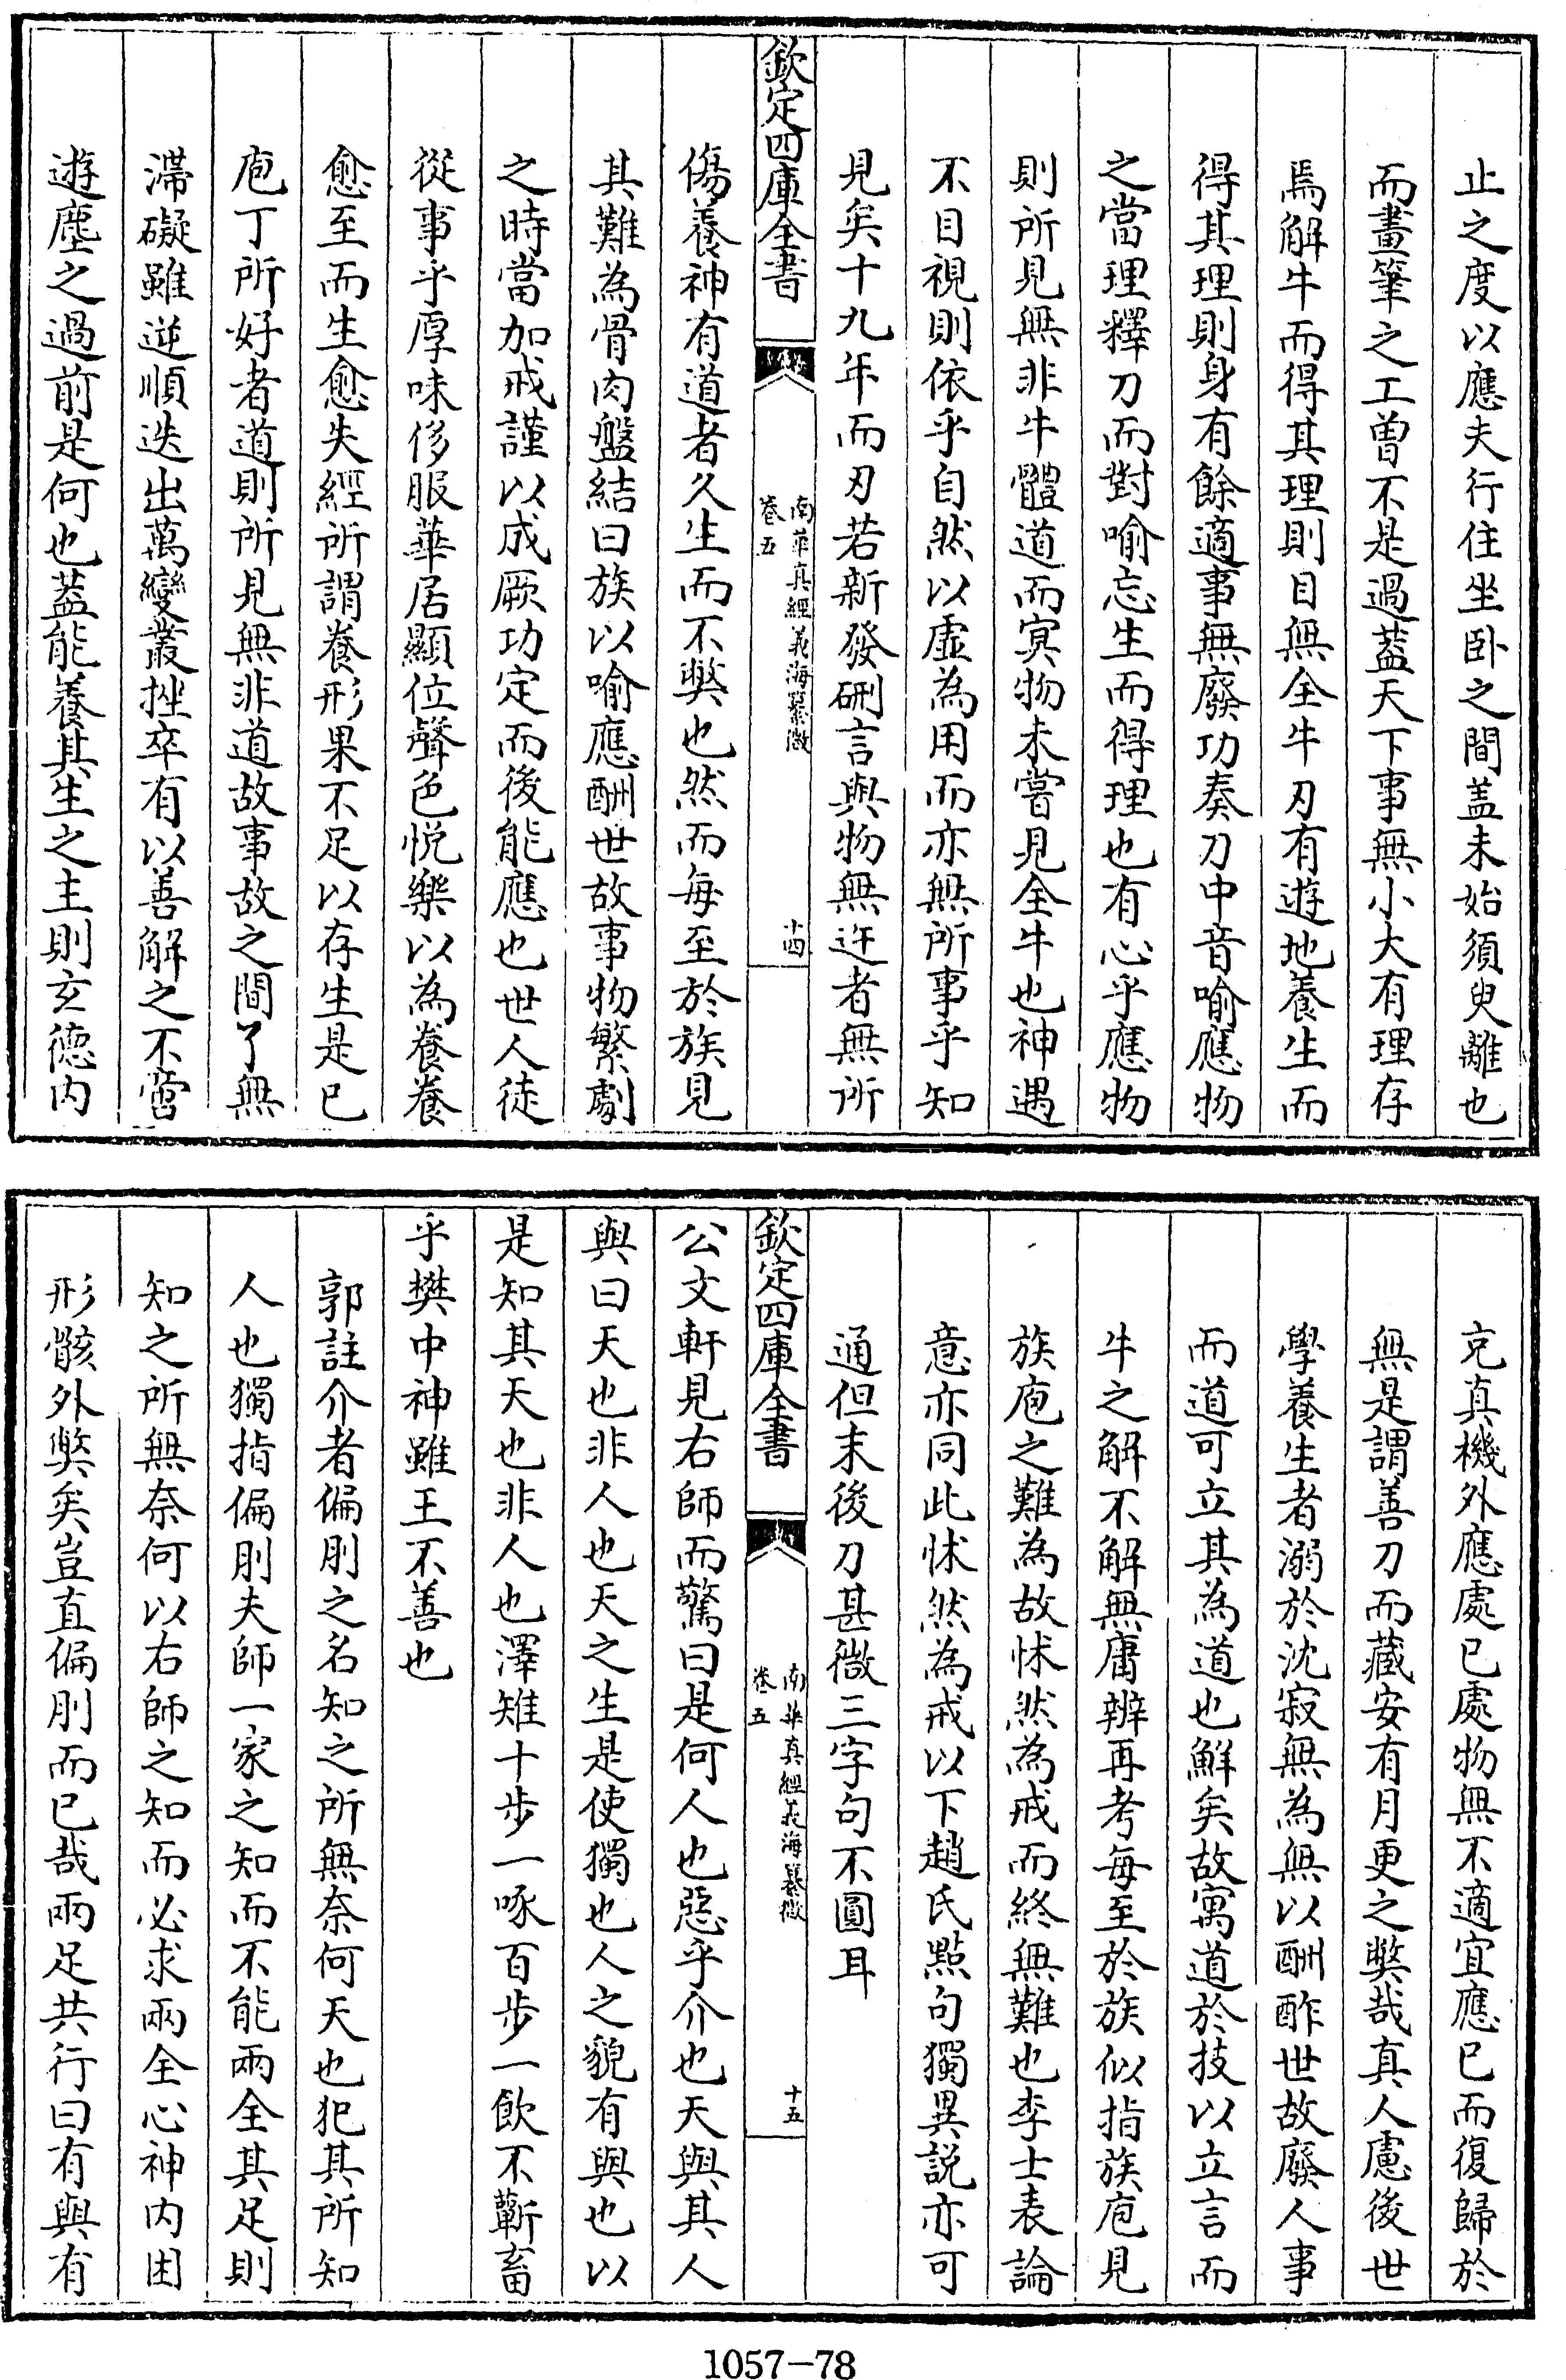 止之度以應夫行住坐卧之間盖未始須臾離也
而畫筆之工曽不是過蓋天下事無小大有理存
焉解牛而得其理則目無全牛刃有遊地養生而
得其理則身有餘適事無廢功奏刀中音喻應物
之當理釋刀而對喻忘生而得理也有心乎應物
則所見無非牛體道而冥物未嘗見全牛也神遇
不目視則依乎自然以虚為用而亦無所事乎知
見矣十九年而刃若新發硎言與物無迕者無所
欽定四庫全書
南華真經義海纂微
卷五
十四
傷養神有道者久生而不弊也然而每至於族見
其難為骨肉盤結曰族以喻應酬世故事物繁劇
之時當加戒謹以成厥功定而後能應也世人徒
從事乎厚味侈服華居顯位聲色悦樂以為養養
愈至而生愈失經所謂養形果不足以存生是已
庖丁所好者道則所見無非道故事故之間了無
滯礙雖逆順迭出萬變叢挫卒有以善解之不啻
遊塵之過前是何也蓋能養其生之主則玄德内
充真機外應處已處物無不適宜應已而復歸於
無是謂善刀而藏安有月更之弊哉真人慮後世
學養生者溺於沈寂無為無以酬酢世故廢人事
而道可立其為道也鮮矣故寓道於技以立言而
牛之解不解無庸辨再考每至於族似指族庖見
族庖之難為故怵然為戒而終無難也李士表論
意亦同此怵然為戒以下趙氏點句獨異説亦可
通但末後刀甚微三字句不圓耳
欽定四庫全書
南華真經義海纂微
卷五
十五
公文軒見右師而驚曰是何人也惡乎介也天與其人
與曰天也非人也天之生是使獨也人之貌有與也以
是知其天也非人也澤雉十步一啄百步一飲不蘄畜
乎樊中神雖王不善也
郭註介者偏刖之名知之所無奈何天也犯其所知
人也獨指偏刖夫師一家之知而不能兩全其足則
知之所無奈何以右師之知而必求兩全心神内困
形骸外弊矣豈直偏刖而已哉兩足共行曰有與有
1057-78